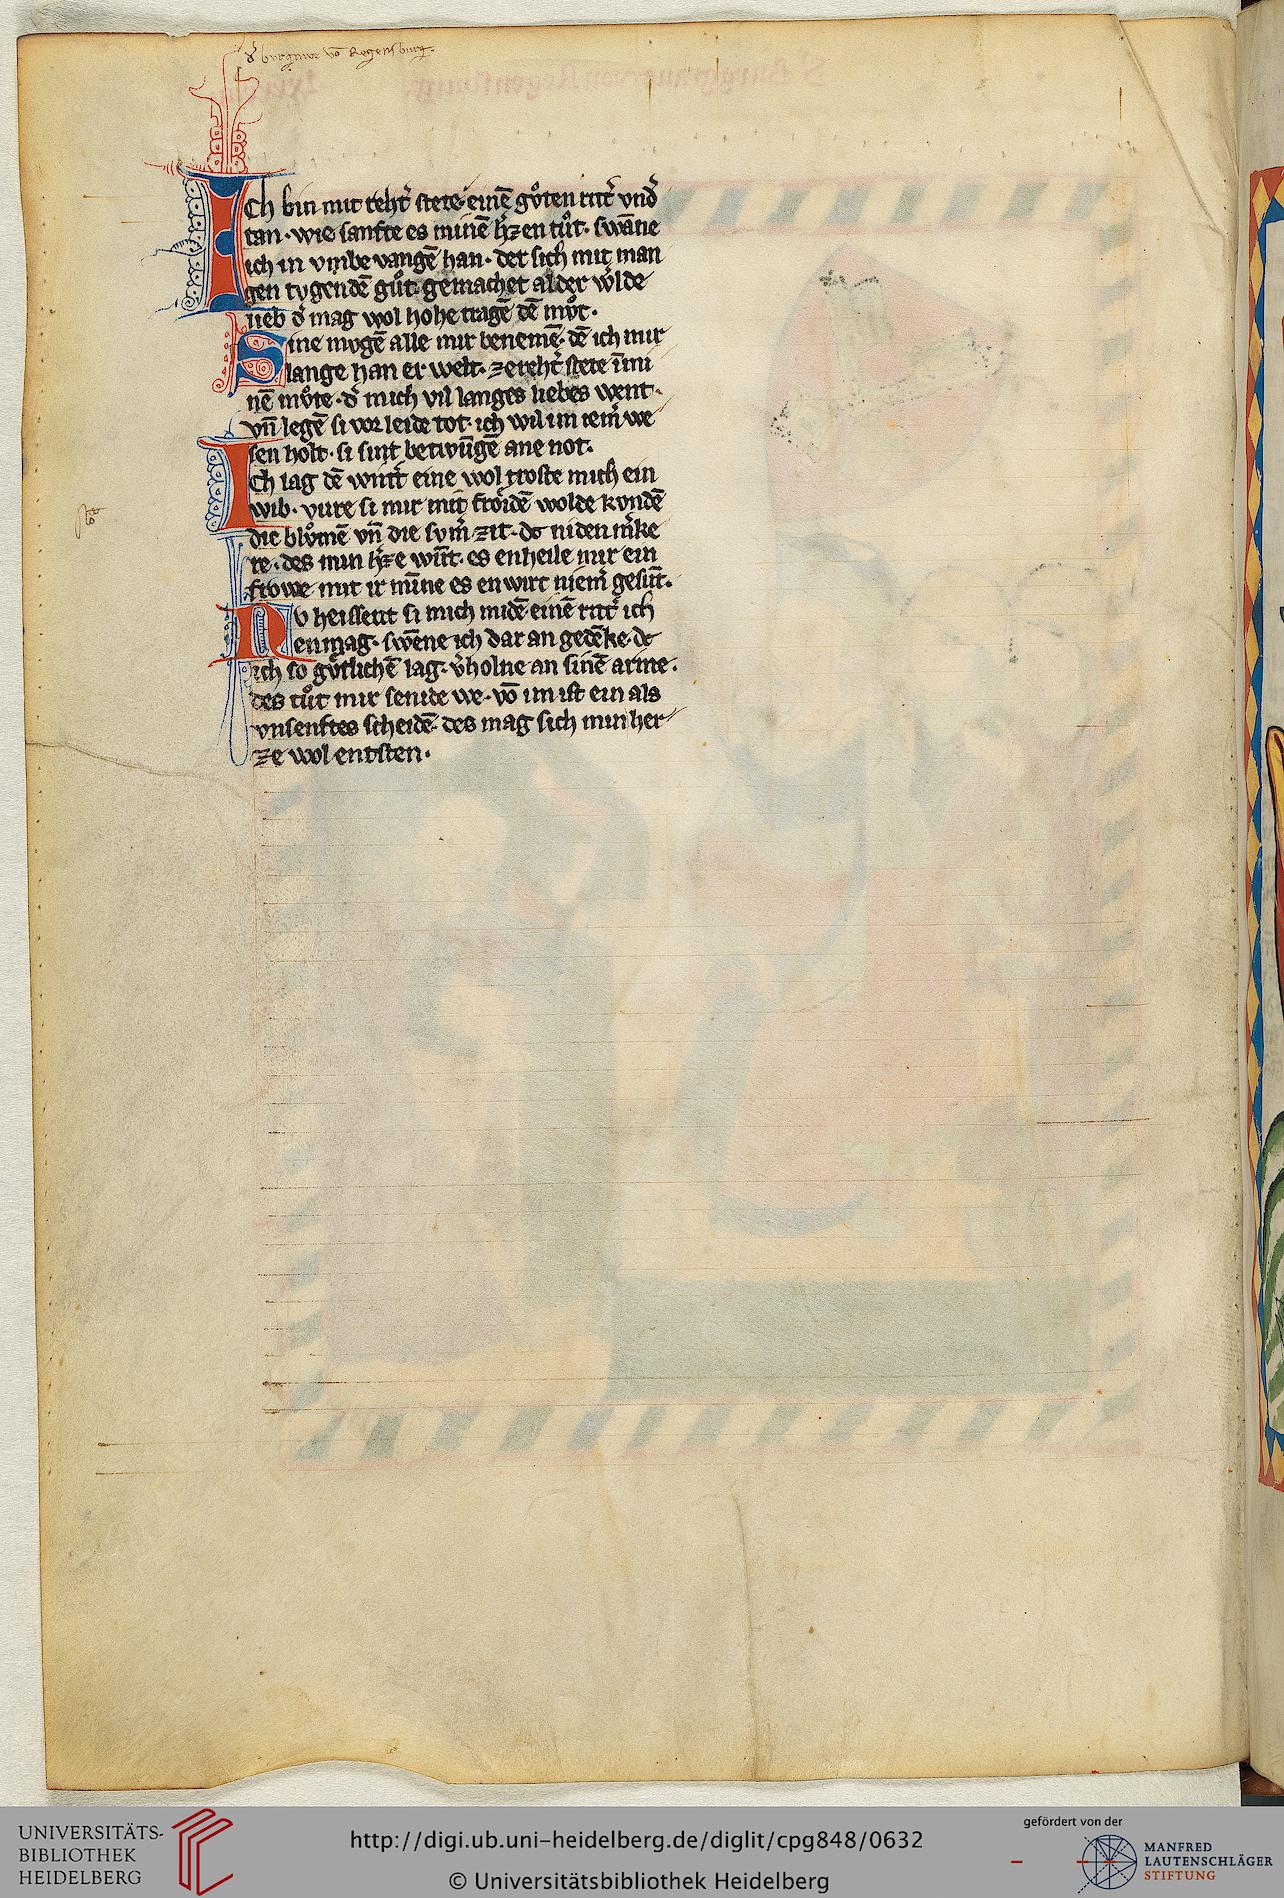 d͛ burgraue võ Regenspurg.
ICh bin mit reht͛ stete einē gůten ritt͛ vnd͛
tan · wie sanfte es minē h͛zen tůt · swāne
ich in vmbe vangē han · der sich mit man
gen tvgendē gůt gemachet al der w͛lde
lieb d͛ mag wol hohe tragē dē můt ·
Sine mvgē alle mir benemē · dē ich mir
lange han er welt · ze reht͛ stete ī mi
nē můte · d͛ mich vil langes liebes went ·
vn̄ legē si vor leide tot · ich wil im iem͛ we
sen holt · si sint betwūgē ane not ·
ICh lag dē wint͛ eine wol troste mich ein
wib · vure si mir mit frȯidē wolde kvndē
die blůmē vn̄ die svm͛ zit · dc niden m͛ke
re · des min h͛ze wn̄t · es enheile mir ein
frowe mit ir mīne es en wirt niem͛ gesūt ·
NV heissent si mich midē einē ritt͛ ich
enmag · swēne ich dar an gedēke · dc
ich so gůtlichē lag · v͛holne an sinē arme ·
des tůt mir senide we · vō im ist ein als
vnsenftes scheidē · des mag sich min her
ze wol entsten ·
UNIVERSITÄTS-
BIBLIOTHEK
HEIDELBERG
http://digi.ub.uni-heidelberg.de/diglit/cpg848/0632
© Universitätsbibliothek Heidelberg
gefördert von der
MANFRED
LAUTENSCHLÄGER
STIFTUNG